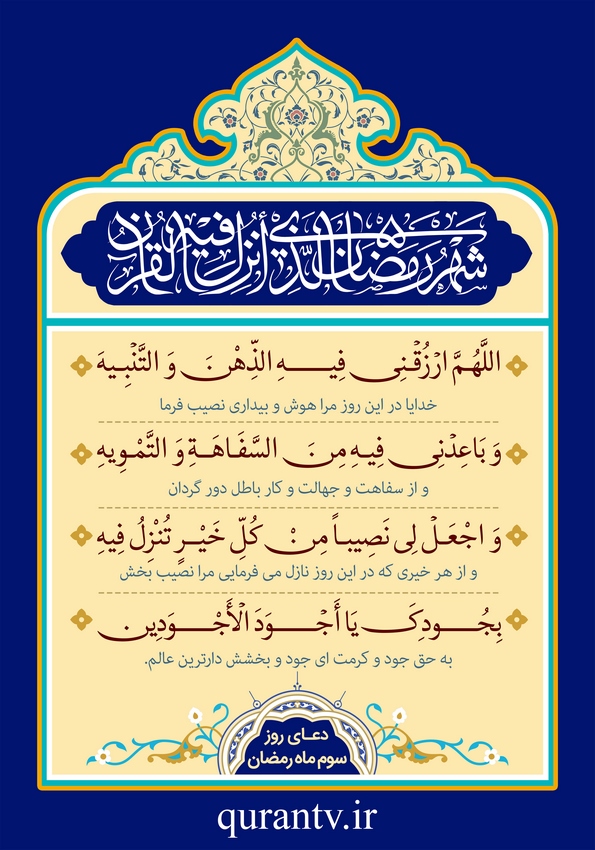 شَهْرُ رَمَضَانَ الَّذِي أُنْزِلَ فِيهِ الْقُرْآنُ
اللَّهُمَّ ارْزُقْنِي فِيهِ الذِّهْنَ وَ التَّنْبِيهَ
خدایا در این روز مرا هوش و بیداری نصیب فرما
وَ بَاعِدْنِي فِيهِ مِنَ السَّفَاهَةِ وَ التَّمْوِيهِ
و از سفاهت و جهالت و کار باطل دور گردان
وَ اجْعَلْ لِي نَصِيباً مِنْ كُلِّ خَيْرٍ تُنْزِلُ فِيهِ
و از هر خیری که در این روز نازل می فرمایی مرا نصیب بخش
بِجُودِكَ يَا أَجْوَدَ الْأَجْوَدِينَ
به حق جود و کرمت ای جود و بخشش دارترین عالم.
دعای روز
سوم ماه رمضان
qurantv.ir